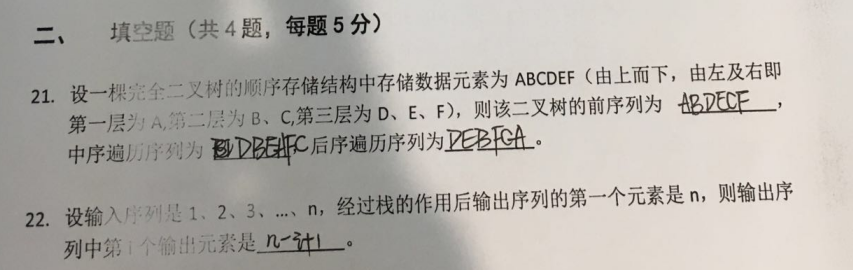 二、 填空题（共 4 题，每题 5 分）
21. 设一棵完全二叉树的顺序存储结构中存储数据元素为 ABCDEF（由上而下，由左及右即
第一层为 A,第二层为 B、C,第三层为 D、E、F），则该二叉树的前序列为 ABDECF ，
中序遍历序列为 DBEAFC 后序遍历序列为 DEBFCA 。
22. 设输入序列是 1、2、3、…、n，经过栈的作用后输出序列的第一个元素是 n，则输出序
列中第 i 个输出元素是 n-i+1 。